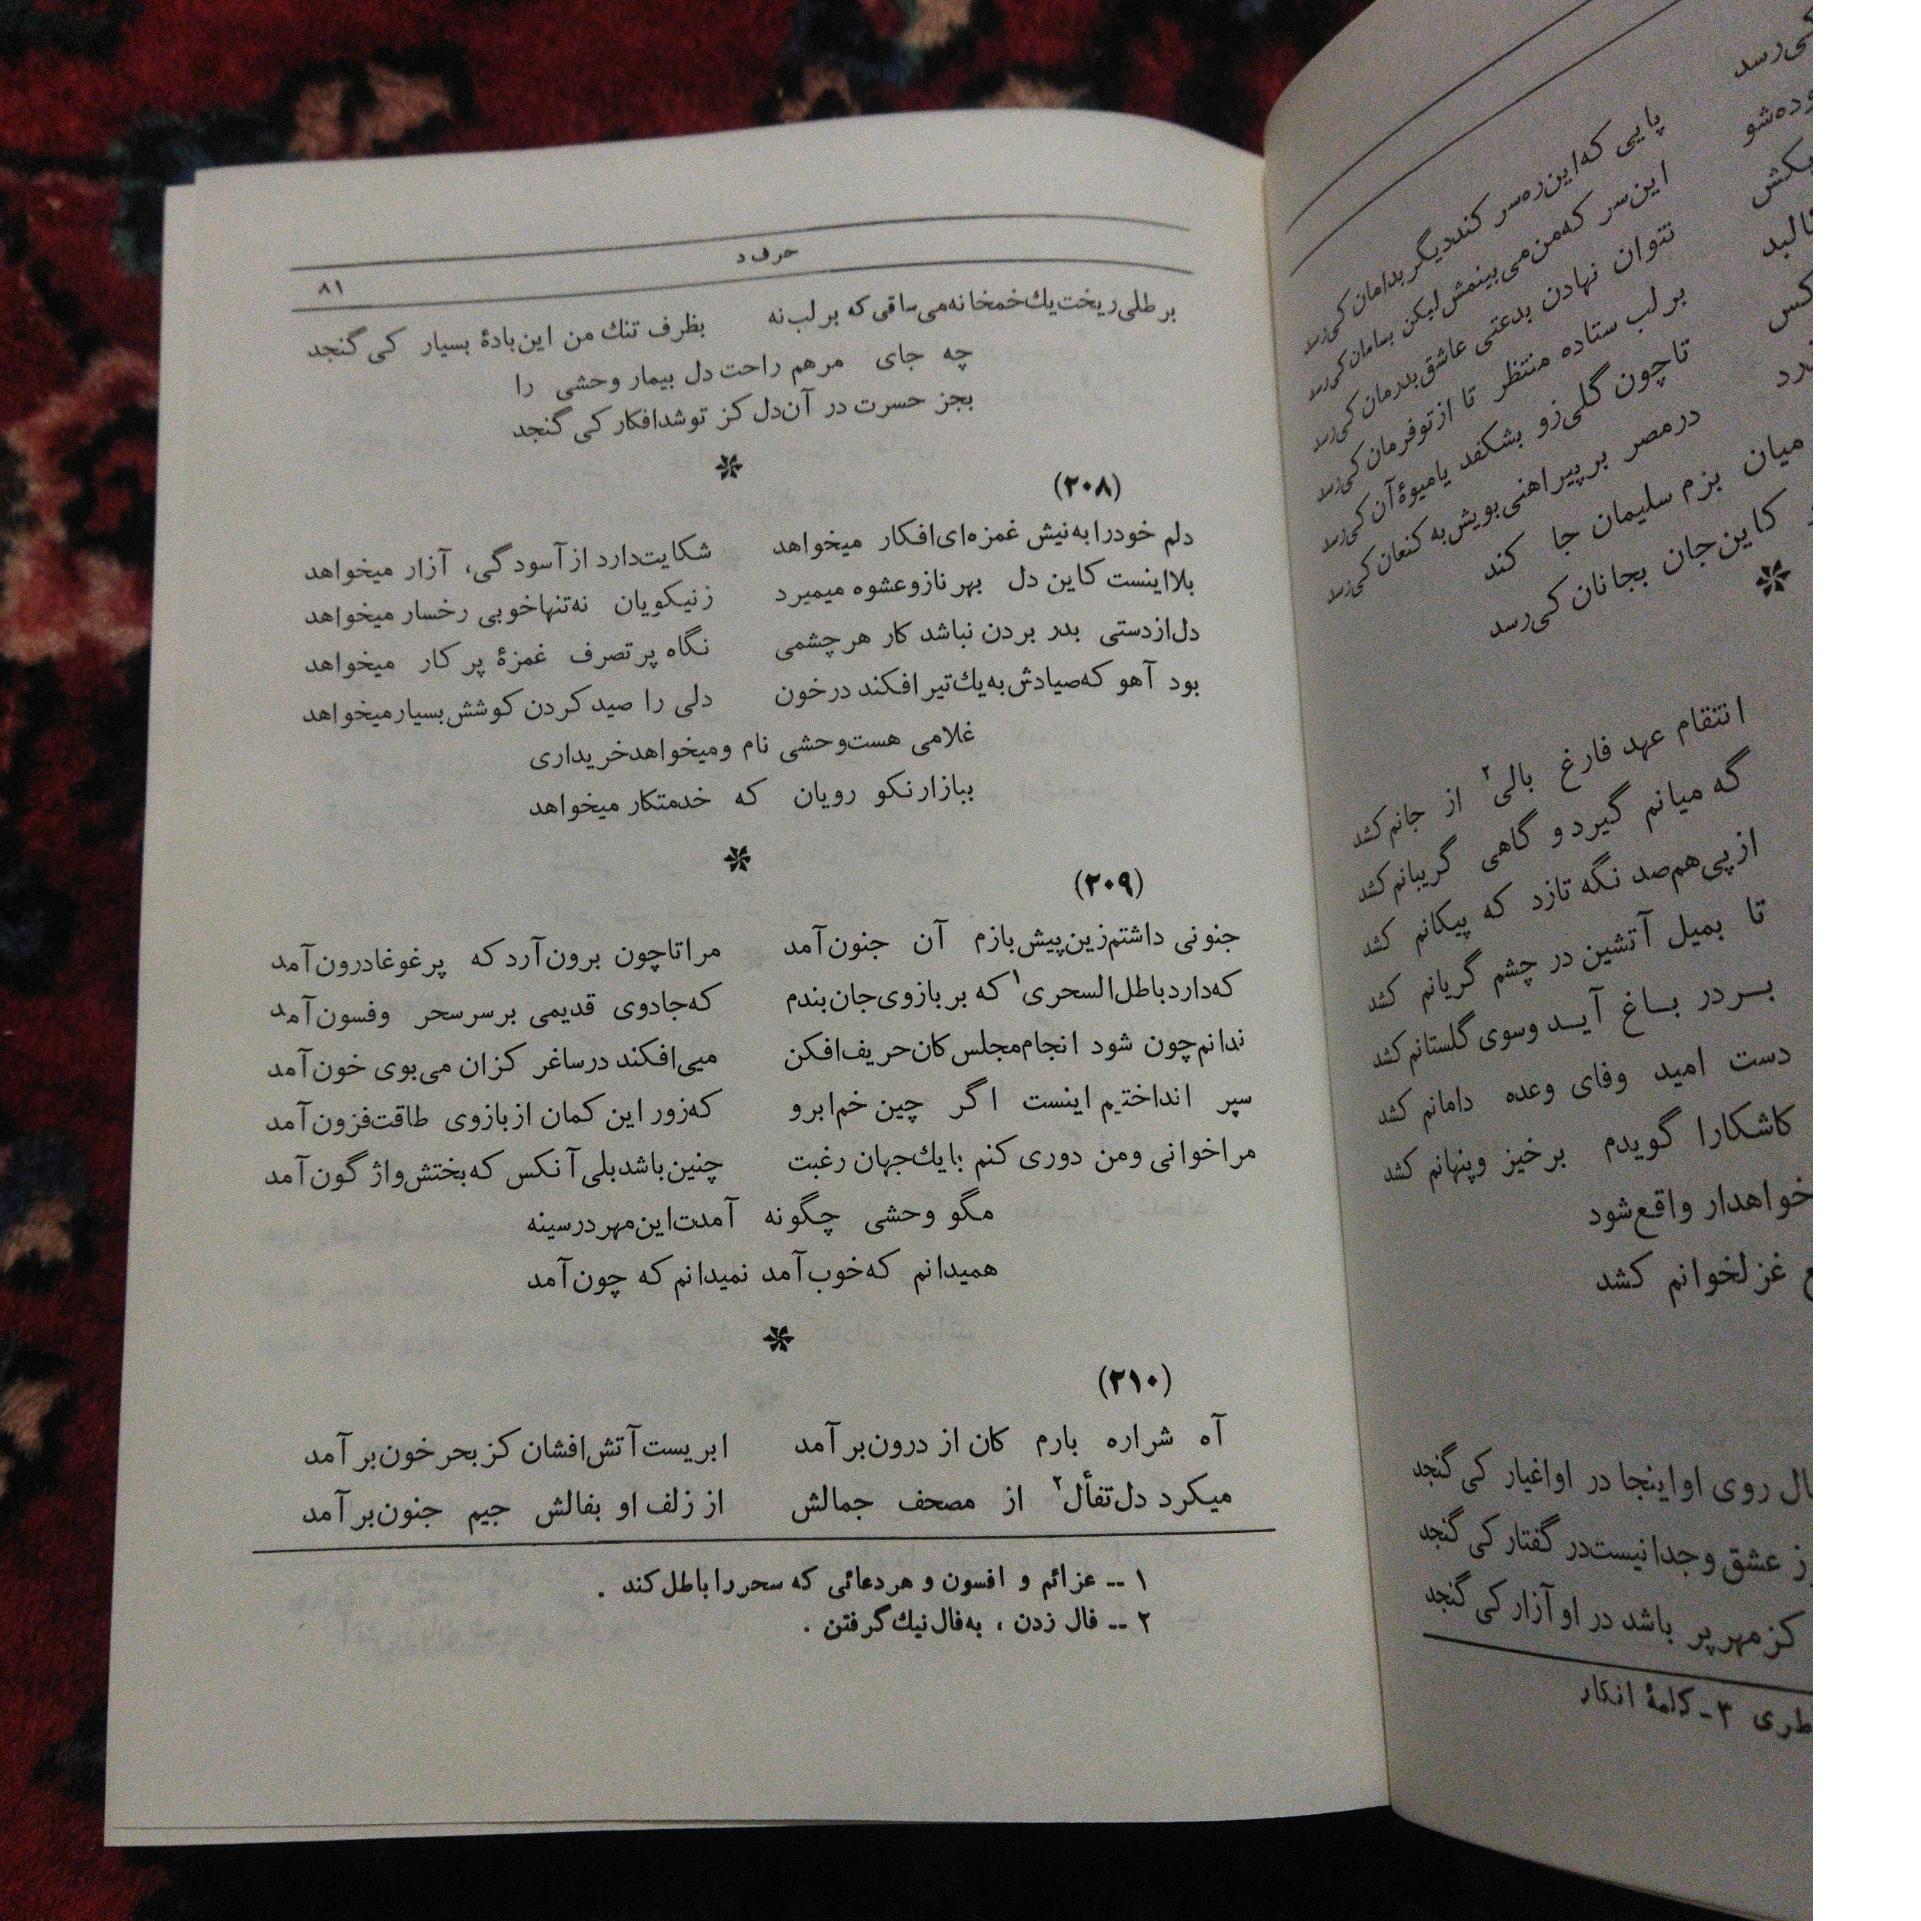 حرف د
۸۱
بر طلی ریخت یك خمخانه می ساقی که بر لب نه
بظرف تنك من این بادهٔ بسیار کی گنجد
چه جای مرهم راحت دل بیمار وحشی را
بجز حسرت در آن دل کز تو شد افکار کی گنجد
(۲۰۸)
دلم خود را به نیش غمزه‌ای افکار میخواهد
شکایت دارد از آسودگی، آزار میخواهد
بلا اینست کاین دل بهر ناز و عشوه میمیرد
ز نیکویان نه تنها خوبی رخسار میخواهد
دل از دستی بدر بردن نباشد کار هر چشمی
نگاه پر تصرف غمزهٔ پر کار میخواهد
بود آهو که صیادش به یك تیر افکند در خون
دلی را صید کردن کوشش بسیار میخواهد
غلامی هست وحشی نام و میخواهد خریداری
ببازار نکو رویان که خدمتکار میخواهد
(۲۰۹)
جنونی داشتم زین پیش بازم آن جنون آمد
مرا تا چون برون آرد که پر غوغا درون آمد
که دارد باطل السحری۱ که بر بازوی جان بندم
که جادوی قدیمی بر سر سحر و فسون آمد
ندانم چون شود انجام مجلس کان حریف افکن
میی افکند در ساغر کزان می بوی خون آمد
سپر انداختیم اینست اگر چین خم ابرو
که زور این کمان از بازوی طاقت فزون آمد
مرا خوانی و من دوری کنم با یك جهان رغبت
چنین باشد بلی آنکس که بختش واژگون آمد
مگو وحشی چگونه آمدت این مهر در سینه
همیدانم که خوب آمد نمیدانم که چون آمد
(۲۱۰)
آه شراره بارم کان از درون بر آمد
ابریست آتش افشان کز بحر خون بر آمد
میکرد دل تفأل۲ از مصحف جمالش
از زلف او بفالش جیم جنون بر آمد
۱ -- عزائم و افسون و هر دعائی که سحر را باطل کند .
۲ -- فال زدن ، به فال نیك گرفتن .
کی رسد
پایی که این ره سر کند دیگر بدامان کی رسد
این سر که من می بینمش لیکن بسامان کی رسد
نتوان نهادن بدعتی عاشق بدرمان کی رسد
بر لب ستاده منتظر تا از تو فرمان کی رسد
تا چون گلی زو بشکفد یا میوهٔ آن کی رسد
در مصر بر پیراهنی بویش به کنعان کی رسد
میان بزم سلیمان جا کند
کاین جان بجانان کی رسد
انتقام عهد فارغ بالی۲ از جانم کشد
گه میانم گیرد و گاهی گریبانم کشد
از پی هم صد نگه تازد که پیکانم کشد
تا بمیل آتشین در چشم گریانم کشد
بر در باغ آید و سوی گلستانم کشد
دست امید وفای وعده دامانم کشد
کاشکارا گویدم برخیز و پنهانم کشد
خواهدار واقع شود
غزلخوانم کشد
روی او اینجا در او اغیار کی گنجد
عشق و جدا نیست در گفتار کی گنجد
کز مهر پر باشد در او آزار کی گنجد
۳ - کلمهٔ انکار